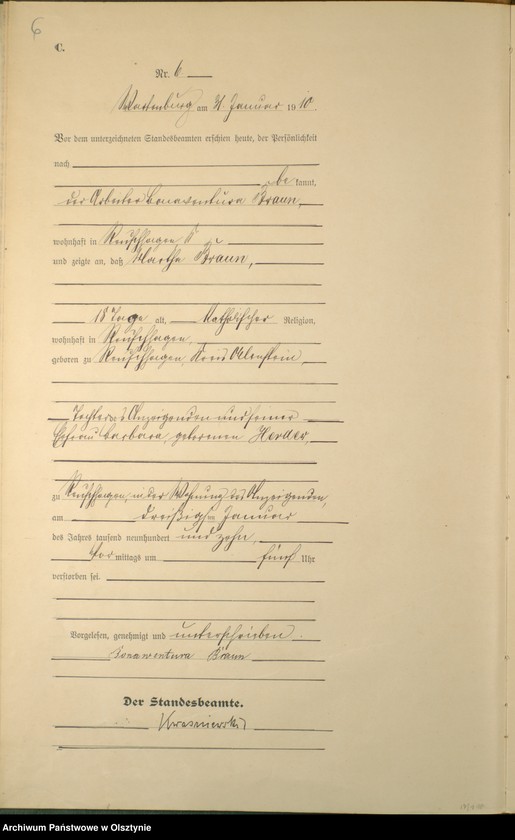 6
C.
Nr. 6
Wartenburg am 31. Januar 1910.
Vor dem unterzeichneten Standesbeamten erschien heute, der Persönlichkeit
nach
be kannt,
der Arbeiter Bonaventura Braun,
wohnhaft in Reuschhagen
und zeigte an, daß Martha Braun,
18 Tage alt, Katholischer Religion,
wohnhaft in Reuschhagen,
geboren zu Reuschhagen, Kreis Allenstein,
Tochter des Anzeigenden und seiner
Ehefrau Barbara, geborenen Herder,
zu Reuschhagen, in der Wohnung des Anzeigenden,
am dreißigsten Januar
des Jahres tausend neunhundert und zehn,
Vor mittags um fünf Uhr
verstorben sei.
Vorgelesen, genehmigt und unterschrieben.
Bonawentura Braun
Der Standesbeamte.
Kwasniewski
Archiwum Państwowe w Olsztynie